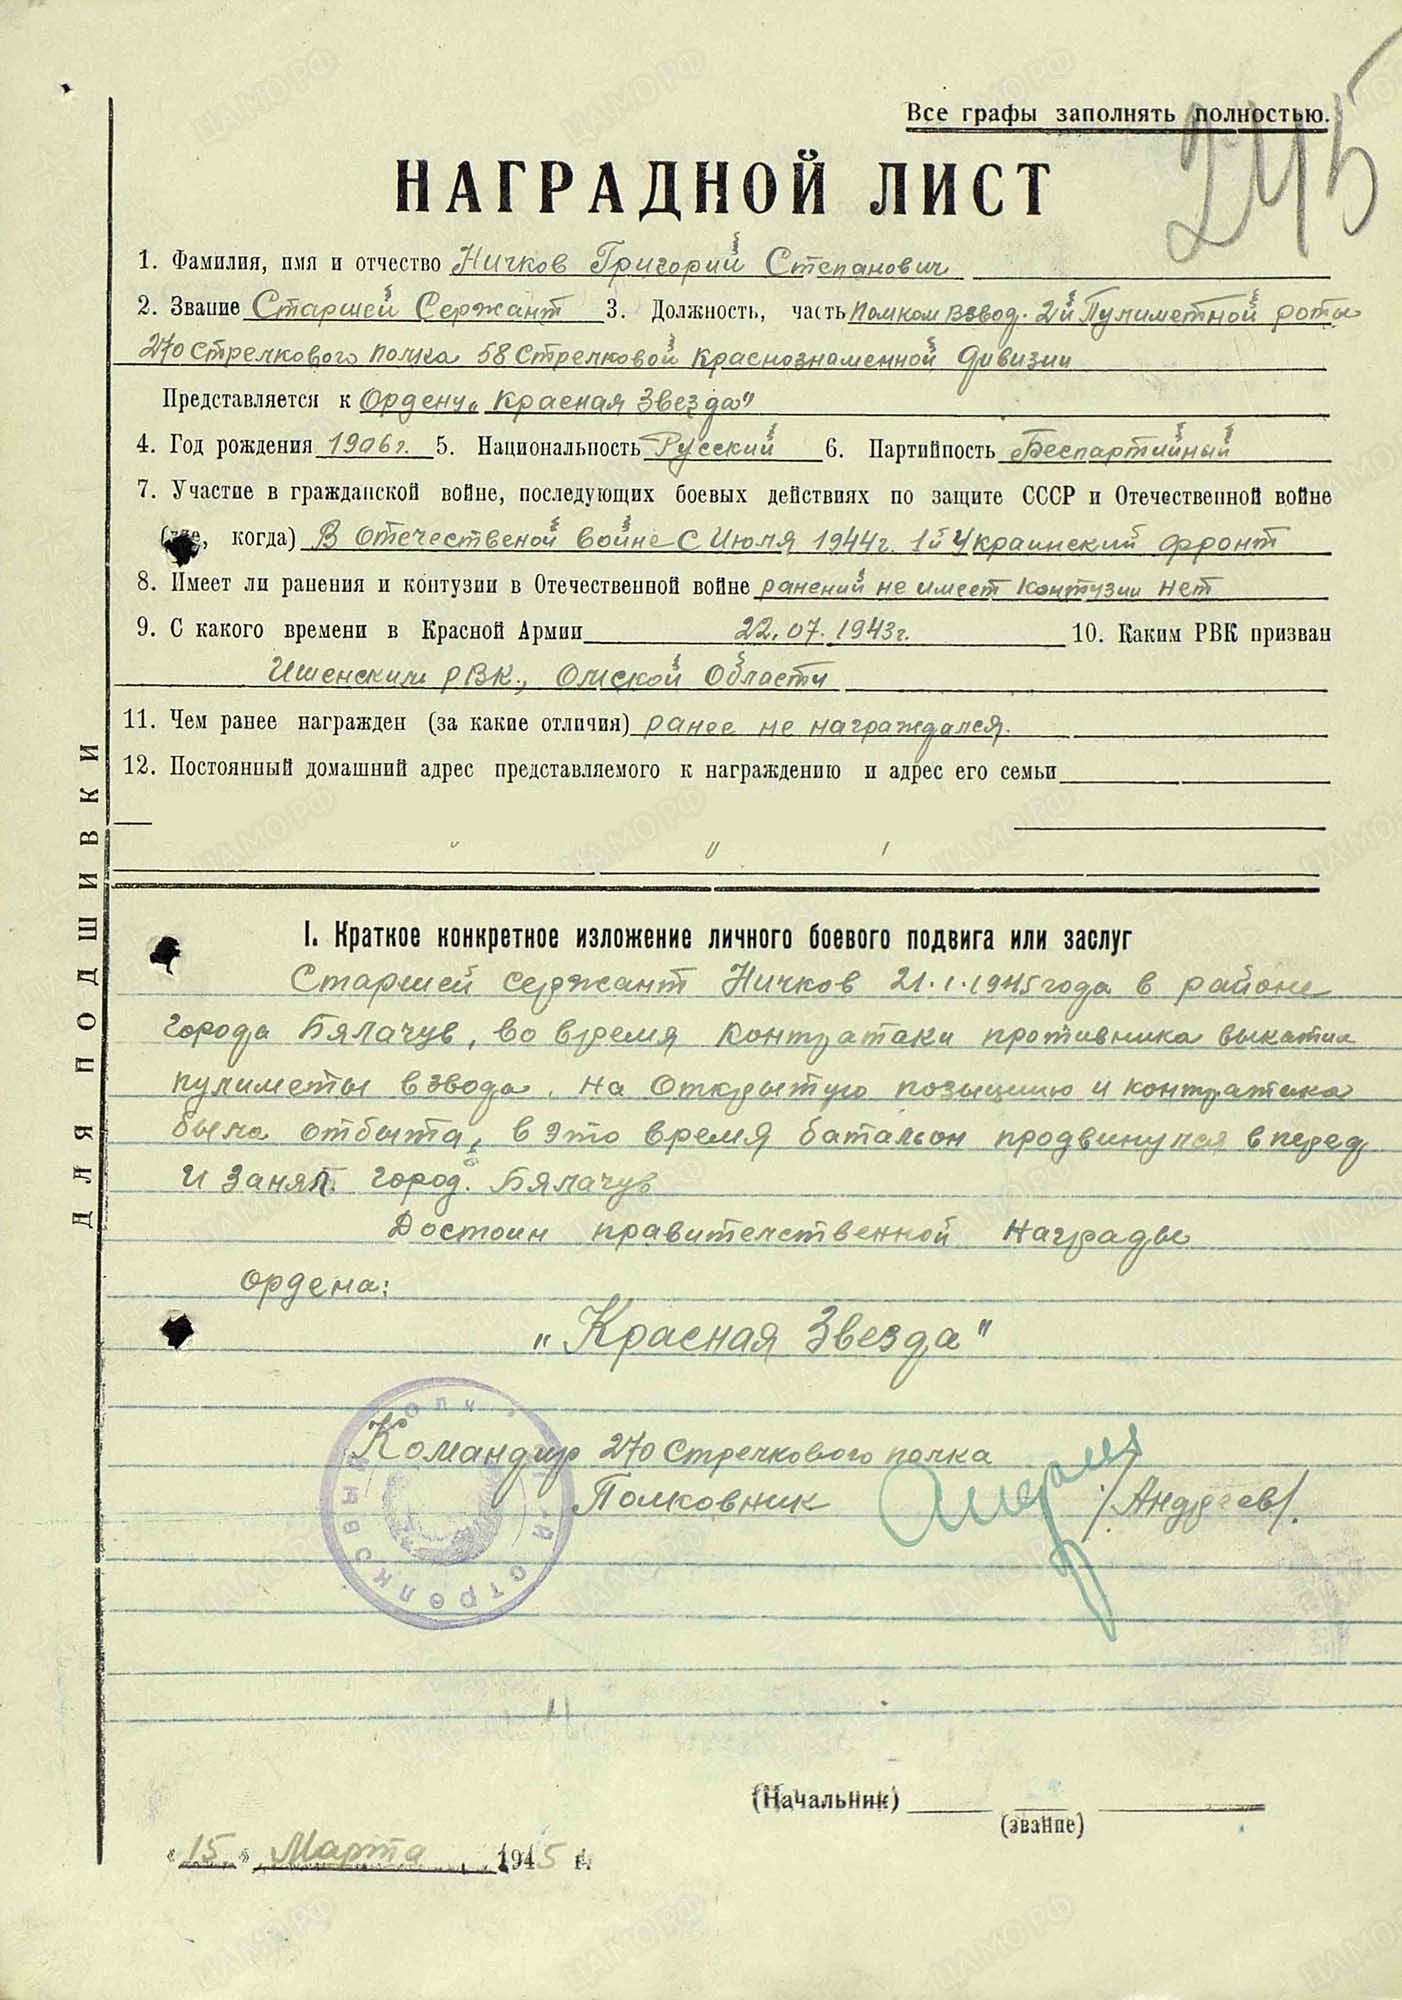 245
Все графы заполнять полностью.
НАГРАДНОЙ ЛИСТ
1. Фамилия, имя и отчество Ничков Григорий Степанович
2. Звание Старшей Сержант 3. Должность, часть Помком взвод. 2й Пулиметной роты
270 Стрелкового полка 58 Стрелковой Краснознаменной Дивизии
Представляется к Ордену „Красная Звезда"
4. Год рождения 1906 г. 5. Национальность Русский 6. Партийность Беспартийный
7. Участие в гражданской войне, последующих боевых действиях по защите СССР и Отечественной войне
(где, когда) В Отечественой войне с Июля 1944 г. 1й Украинский фронт
8. Имеет ли ранения и контузии в Отечественной войне ранений не имеет контузии нет
9. С какого времени в Красной Армии 22.07.1943 г. 10. Каким РВК призван
Ишенским РВК., Омской Области
11. Чем ранее награжден (за какие отличия) ранее не награждался.
12. Постоянный домашний адрес представляемого к награждению и адрес его семьи
I. Краткое конкретное изложение личного боевого подвига или заслуг
Старшей сержант Ничков 21.1.1945 года в районе
города Бялачув, во время контратаки противника выкатил
пулиметы взвода. на открытую позыцию и контратака
была отбыта, в это время батальон продвинулся вперед
и занял. город. Бялачув
Достоин правителственной награды
ордена:
„Красная Звезда"
Командир 270 Стрелкового полка
Полковник /Андреев/.
ДЛЯ ПОДШИВКИ
(Начальник)
(звание)
„15" Марта 1945 г.